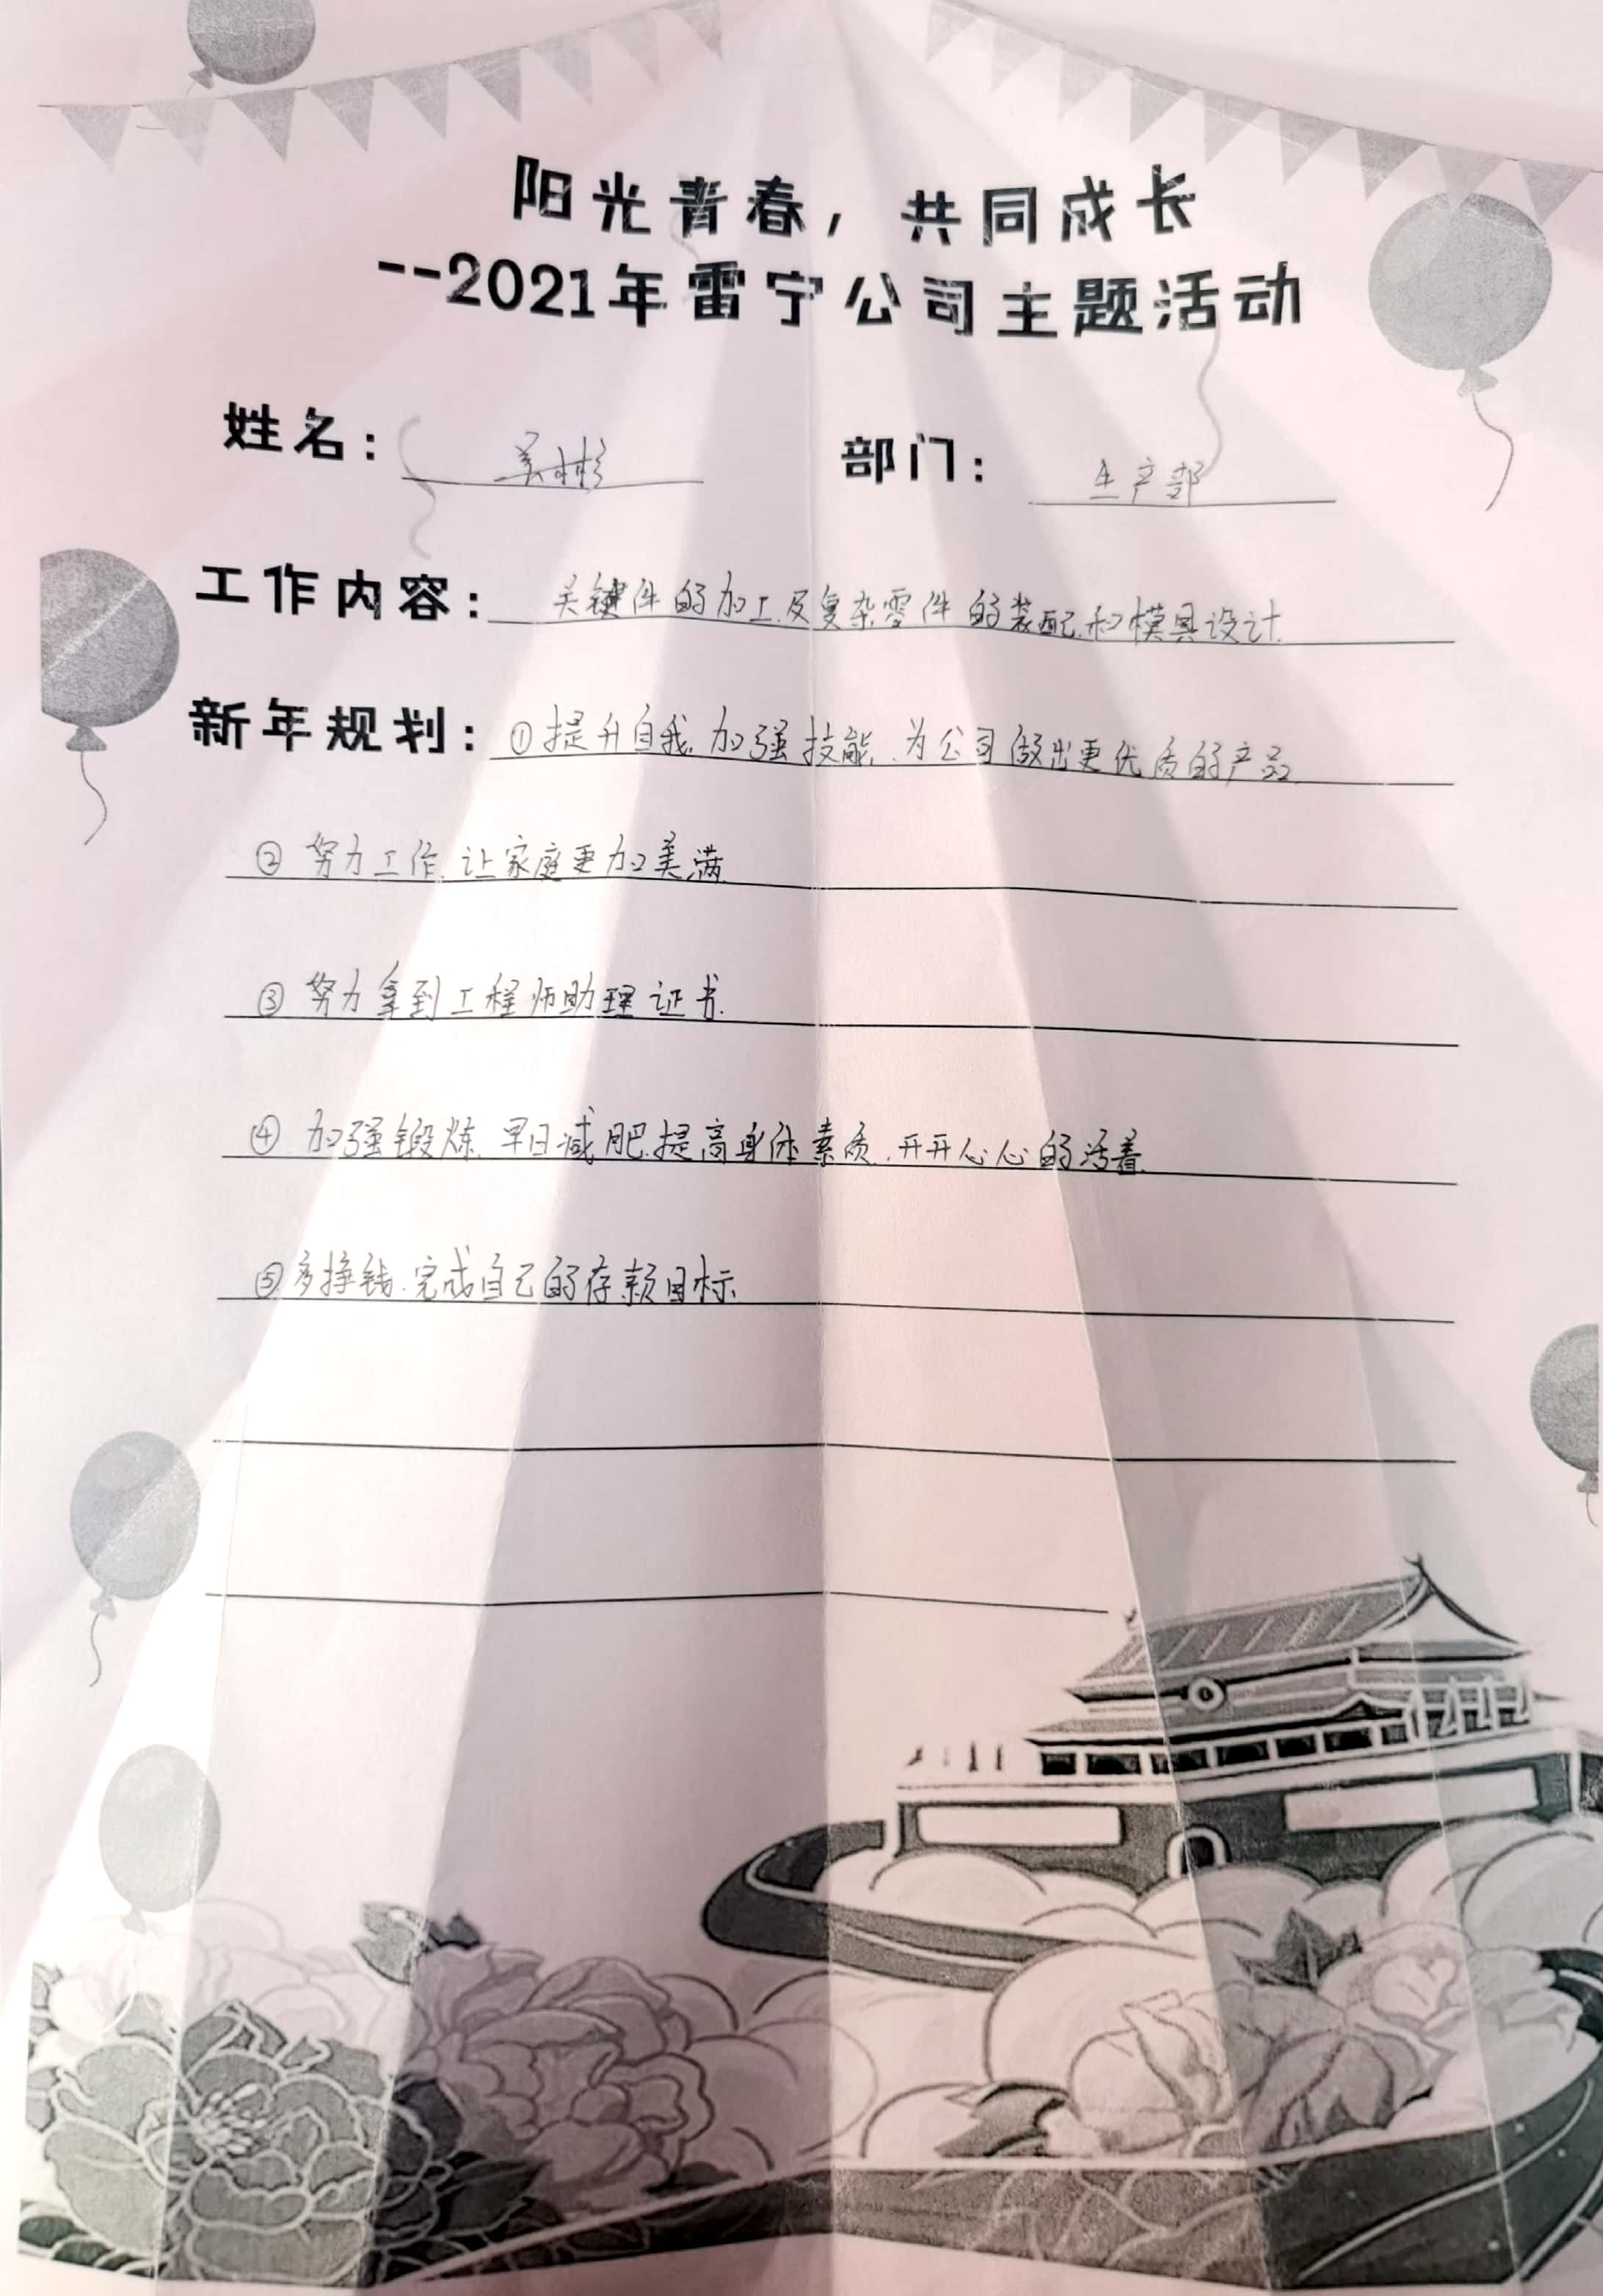 阳光青春，共同成长
--2021年雷宁公司主题活动
姓名： 部门：生产部
工作内容：关键件的加工及复杂零件的装配和模具设计
新年规划：①提升自我.加强技能.为公司做出更优质的产品.
②努力工作.让家庭更加美满
③努力拿到工程师助理证书.
④加强锻炼.早日减肥.提高身体素质.开开心心的活着.
⑤多挣钱.完成自己的存款目标